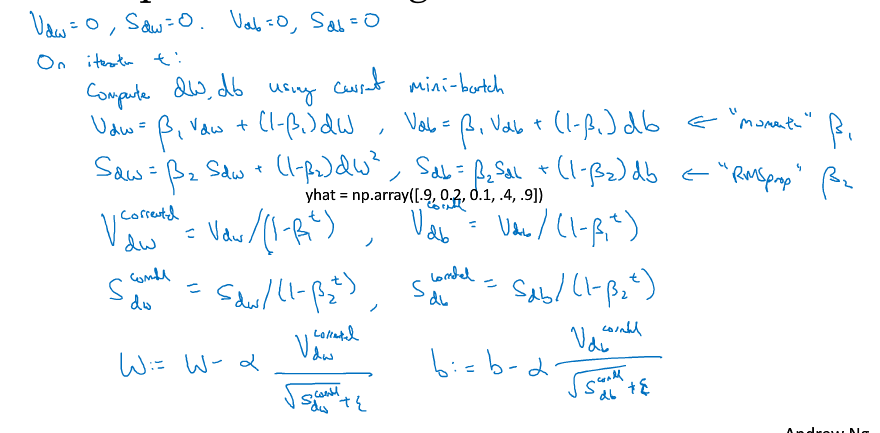 V_dw = 0, S_dw = 0. V_db = 0, S_db = 0
On iteration t:
Compute dW, db using current mini-batch
V_dw = β₁ V_dw + (1-β₁) dW , V_db = β₁ V_db + (1-β₁) db ← "momentum" β₁
S_dw = β₂ S_dw + (1-β₂) dW² , S_db = β₂ S_db + (1-β₂) db ← "RMSprop" β₂
yhat = np.array([.9, 0.2, 0.1, .4, .9])
V_dw^corrected = V_dw / (1-β₁^t) , V_db^corrected = V_db / (1-β₁^t)
S_dw^corrected = S_dw / (1-β₂^t) , S_db^corrected = S_db / (1-β₂^t)
W := W - α V_dw^corrected / √S_dw^corrected + ε b := b - α V_db^corrected / √S_db^corrected + ε